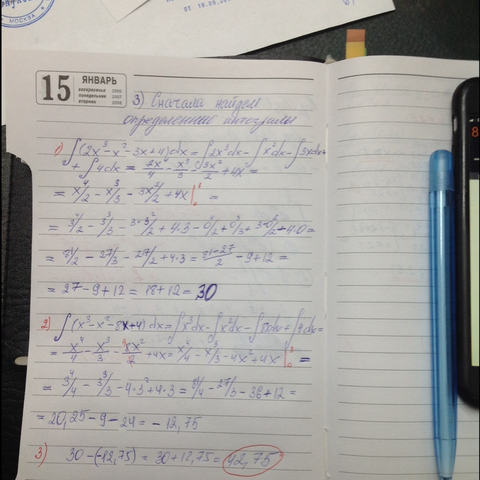 МОСКВА
от 18.09.
15 ЯНВАРЬ
воскресенье 2006
понедельник 2007
вторник 2008
3) Сначала найдем
определенные интегралы
1) ∫(2x³-x²-3x+4)dx = ∫2x³dx - ∫x²dx - ∫3xdx+
+ ∫4dx = 2x⁴/4 - x³/3 - 3x²/2 + 4x =
= x⁴/2 - x³/3 - 3x²/2 + 4x | =
= 3⁴/2 - 3³/3 - 3·3²/2 + 4·3 - 0⁴/2 + 0³/3 + 3·0²/2 + 4·0 =
= 81/2 - 27/3 - 27/2 + 4·3 = 81-27/2 - 9 + 12 =
= 27 - 9 + 12 = 18 + 12 = 30
2) ∫(x³-x²-8x+4)dx = ∫x³dx - ∫x²dx - ∫8xdx + ∫4dx =
= x⁴/4 - x³/3 - 8x²/2 + 4x = x⁴/4 - x³/3 - 4x² + 4x |³₀ =
= 3⁴/4 - 3³/3 - 4·3² + 4·3 = 81/4 - 27/3 - 36 + 12 =
= 20,25 - 9 - 24 = - 12,75
3) 30 - (-12,75) = 30 + 12,75 = 42,75